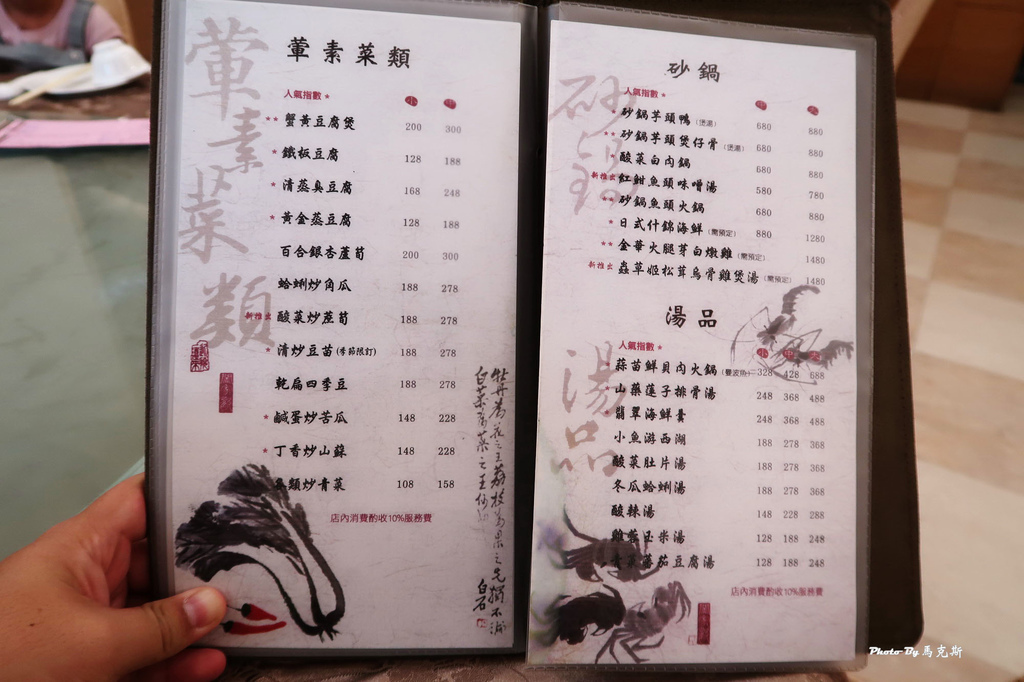 葷素菜類
葷素菜類
人氣指數★ 小 中
★★蟹黃豆腐煲 200 300
★鐵板豆腐 128 188
★清蒸臭豆腐 168 248
★黃金蒸豆腐 128 188
百合銀杏蘆筍 200 300
蛤蜊炒角瓜 188 278
新推出 酸菜炒蔗筍 188 278
★清炒豆苗(季節限訂) 188 278
乾扁四季豆 188 278
★鹹蛋炒苦瓜 148 228
★丁香炒山蘇 148 228
類炒青菜 108 158
店內消費酌收10%服務費
牡丹為花之王荔枝為果之先獨不論
白菜為菜之王何
白石
砂鍋
砂鍋
人氣指數★ 中 大
★砂鍋芋頭鴨(煲湯) 680 880
★★砂鍋芋頭煲仔骨(煲湯) 680 880
★酸菜白肉鍋 680 880
新推出 紅魽魚頭味噌湯 580 780
★★砂鍋魚頭火鍋 680 880
★日式什錦海鮮(需預定) 880 1280
★★金華火腿芽白燉雞(需預定) 1480
新推出 蟲草姬松茸烏骨雞煲湯(需預定) 1480
湯品
湯品
人氣指數★ 小 中 大
★蒜苗鮮貝肉火鍋(曼波魚) 328 428 688
山藥蓮子排骨湯 248 368 488
翡翠海鮮羹 248 368 488
小魚游西湖 188 278 368
酸菜肚片湯 188 278 368
冬瓜蛤蜊湯 188 278 368
酸辣湯 148 228 288
雞茸玉米湯 128 188 248
青菜蕃茄豆腐湯 128 188 248
店內消費酌收10%服務費
Photo By 馬克斯